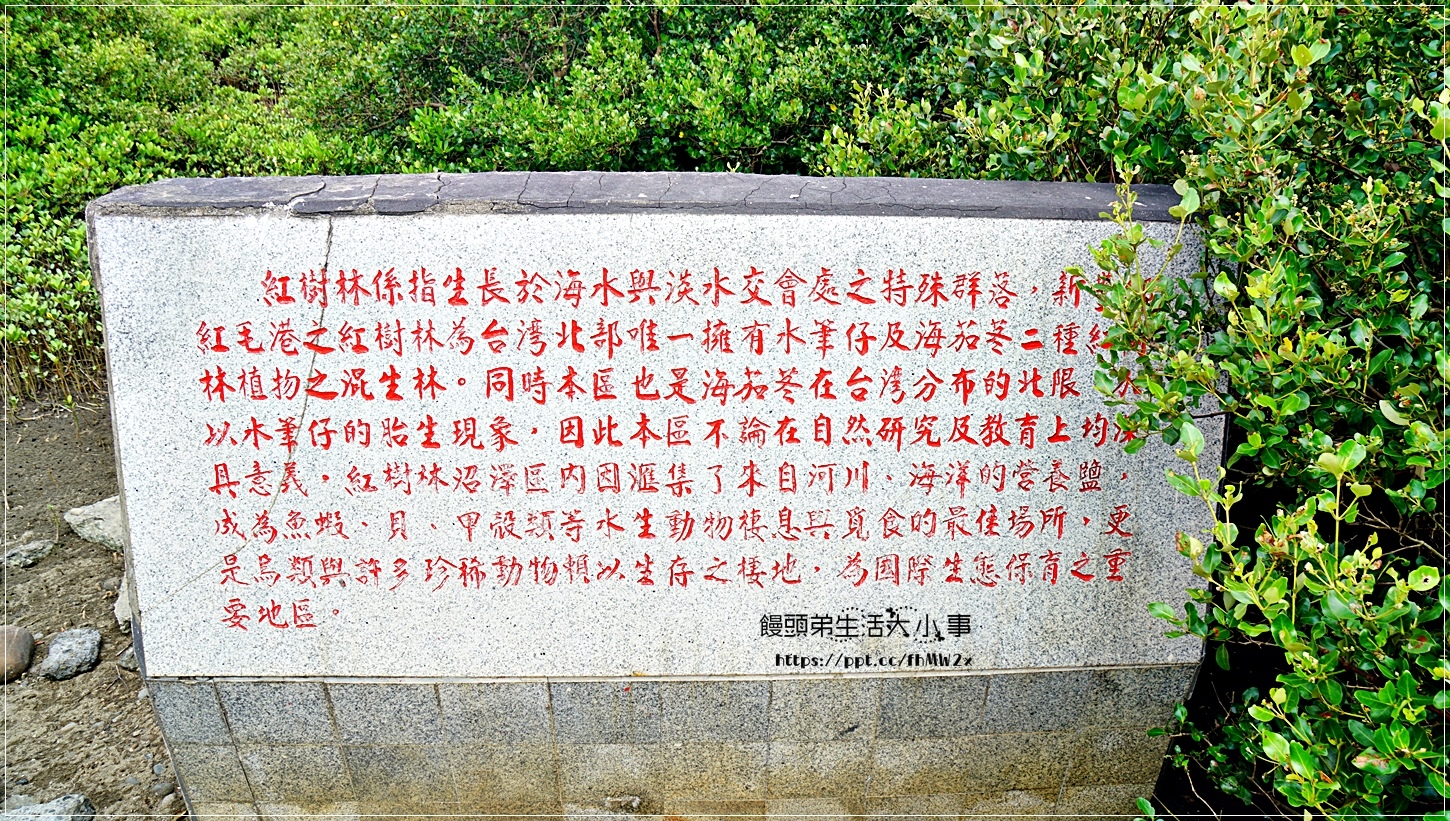 紅樹林係指生長於海水與淡水交會處之特殊群落，新
紅毛港之紅樹林為台灣北部唯一擁有水筆仔及海茄苳二種紅
林植物之混生林。同時本區也是海茄苳在台灣分布的北限
以水筆仔的胎生現象，因此本區不論在自然研究及教育上均深
具意義，紅樹林沼澤區內因滙集了來自河川、海洋的營養鹽，
成為魚蝦、貝、甲殼類等水生動物棲息與覓食的最佳場所，更
是鳥類與許多珍稀動物賴以生存之棲地，為國際生態保育之重
要地區。
饅頭弟生活大小事
https://ppt.cc/fhMW2x